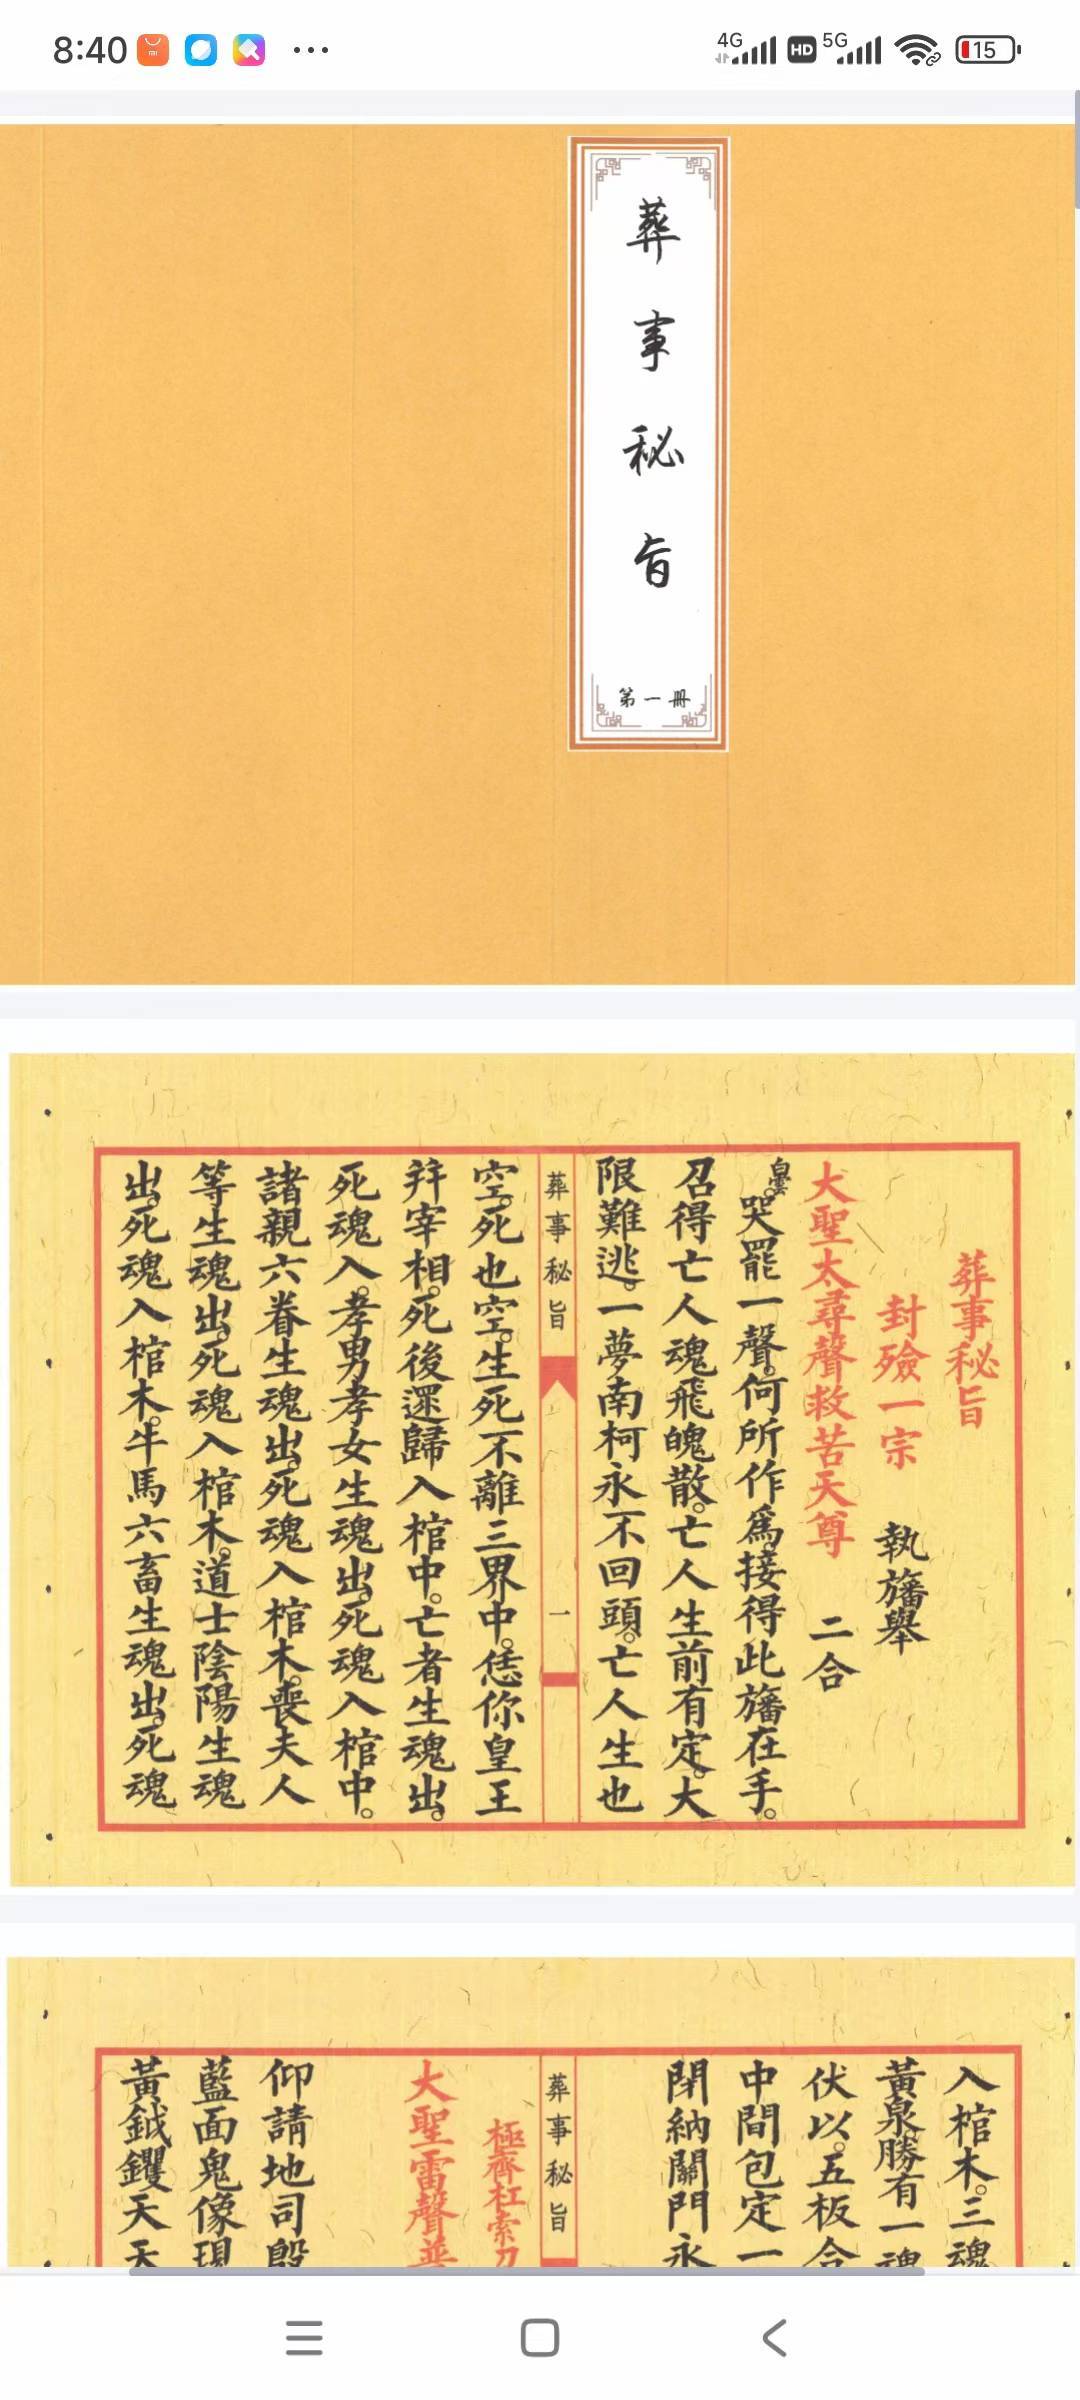 8:40
4G HD 5G 15
葬事秘旨
第一冊
葬事秘旨
封殮一宗 執旛舉
大聖太尋聲救苦天尊 二合
白雲。哭罷一聲。何所作爲。接得此旛在手。
召得亡人魂飛魄散。亡人生前有定。大
限難逃。一夢南柯永不回頭。亡人生也
葬事秘旨 一
空。死也空。生死不離三界中。恁你皇王
并宰相。死後還歸入棺中。亡者生魂出。
死魂入。孝男孝女生魂出。死魂入棺中。
諸親六眷生魂出。死魂入棺木。喪夫人
等生魂出。死魂入棺木。道士陰陽生魂
出。死魂入棺木。牛馬六畜生魂出。死魂
入棺木。三魂
黃泉。勝有一魂
伏以。五板合
中間包定一
閉納關門永
葬事秘旨
極齊杠索刀
大聖雷聲普
仰請地司殷
藍面鬼像現
黃鉞钁天天